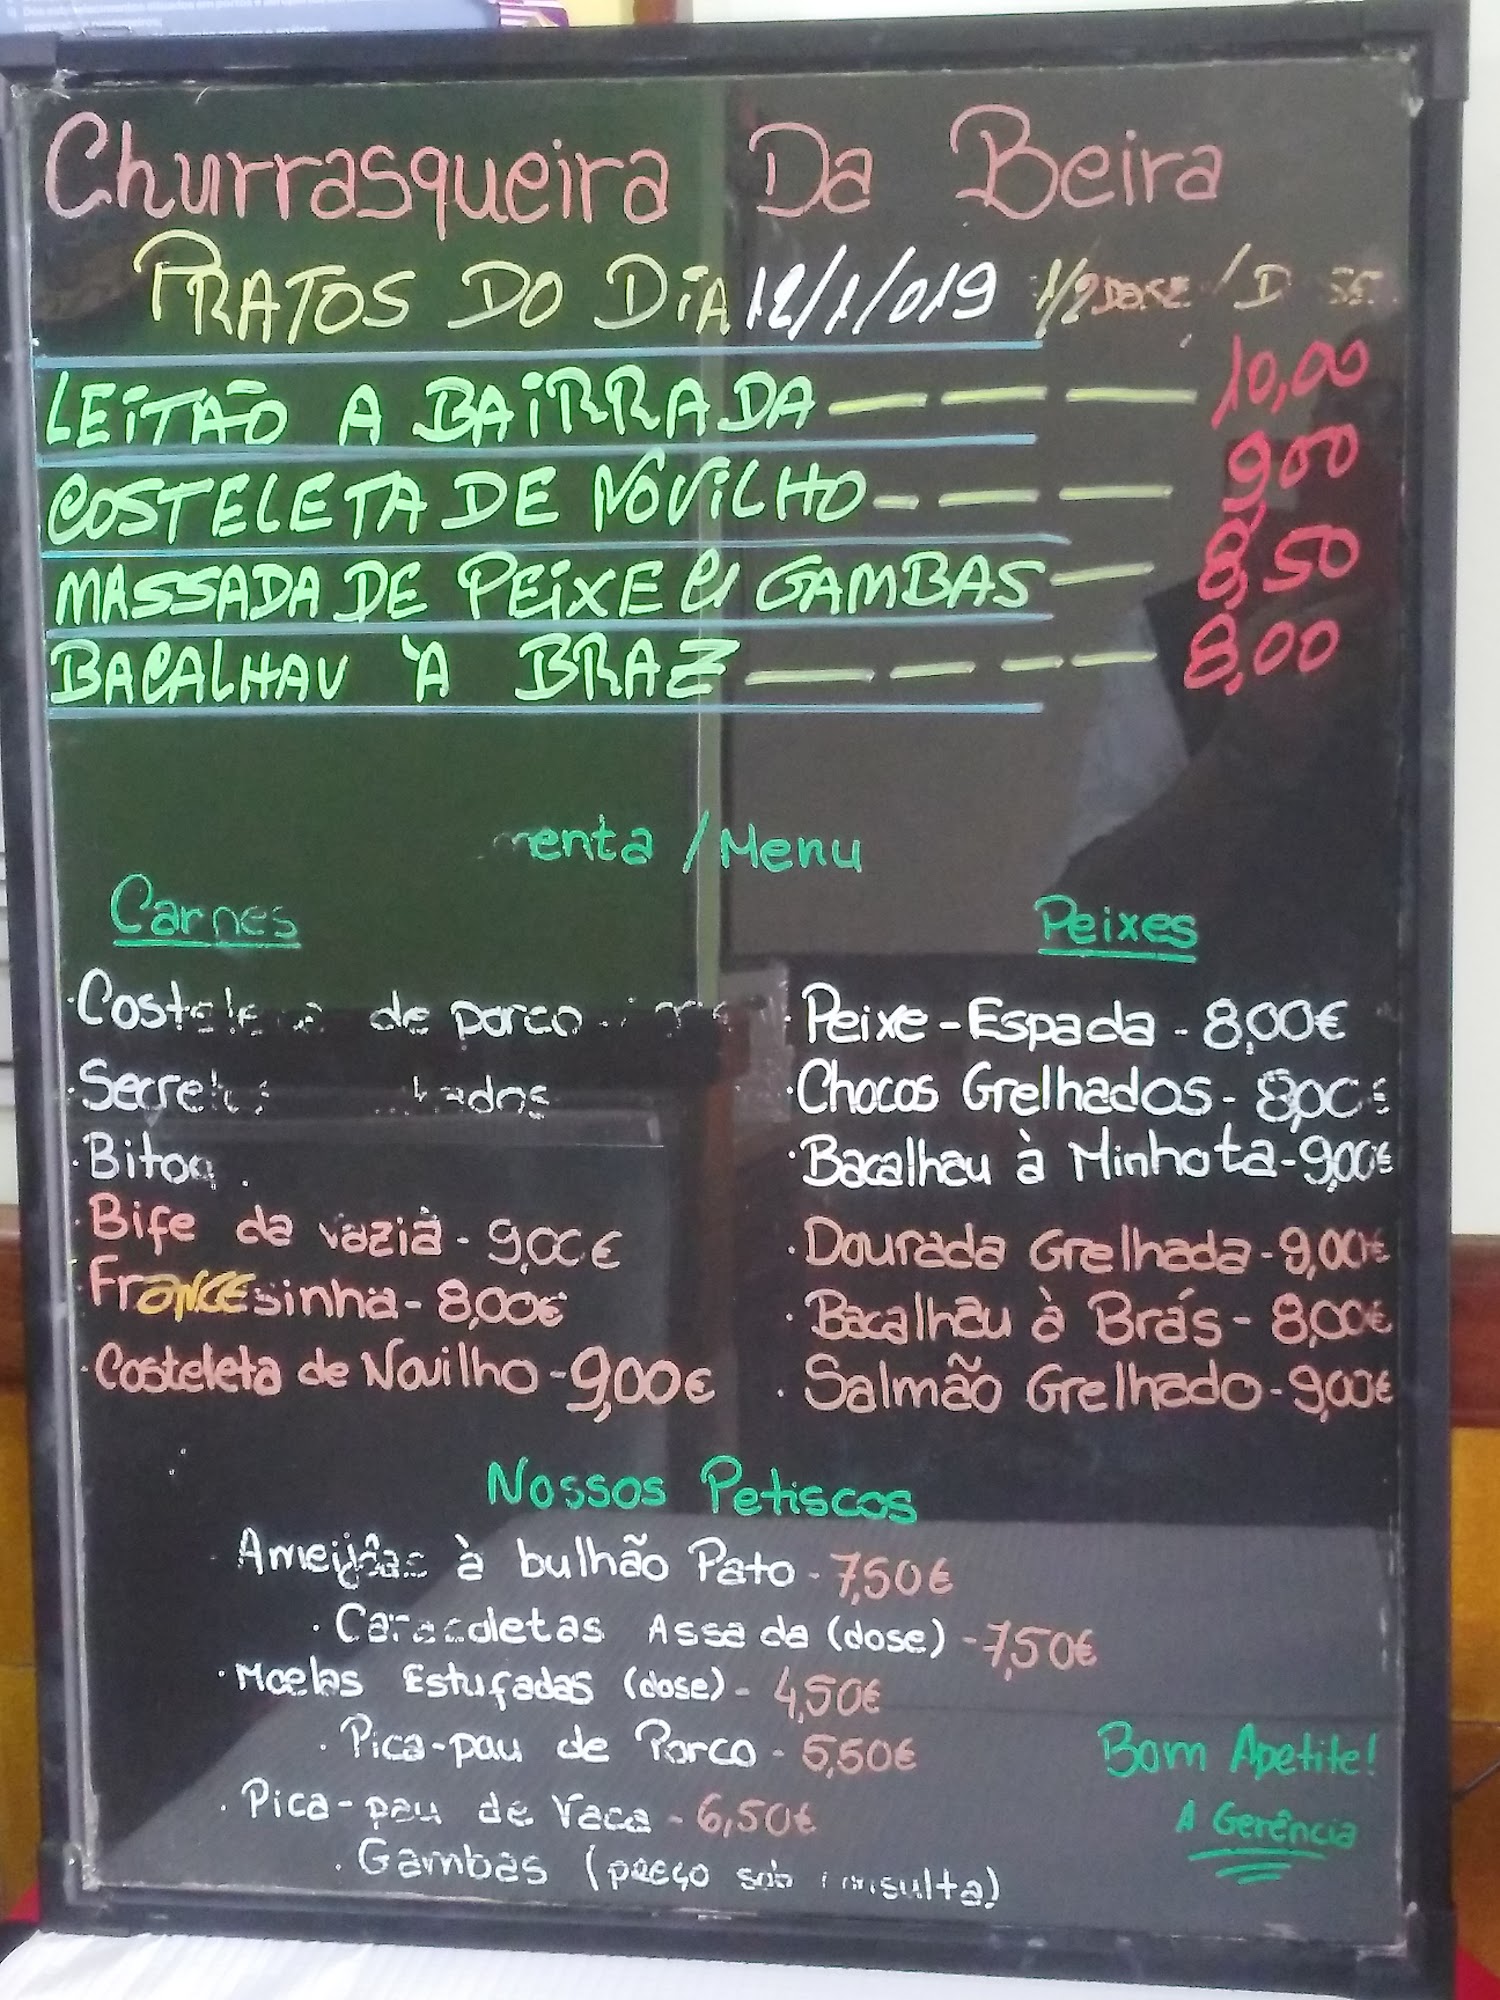 Churrasqueira Da Beira
PRATOS DO DIA 12/1/019 1/2 DOSE / D SE
LEITÃO A BAIRRADA 10,00
COSTELETA DE NOVILHO 9,00
MASSADA DE PEIXE e GAMBAS 8,50
BACALHAU À BRAZ 8,00
menta / Menu
Carnes
· de porco
·
·
· Bife da vaziá - 9,00€
· Francesinha - 8,00€
· Costeleta de Novilho - 9,00€
Peixes
· Peixe-Espada - 8,00€
· Chocos Grelhados - 8,00€
· Bacalhau à Minhota - 9,00€
· Dourada Grelhada - 9,00€
· Bacalhau à Brás - 8,00€
· Salmão Grelhado - 9,00€
Nossos Petiscos
· Ameijôas à bulhão Pato - 7,50€
· Caracoletas Assada (dose) - 7,50€
· Moelas Estufadas (dose) - 4,50€
· Pica-pau de Porco - 5,50€
· Pica-pau de Vaca - 6,50€
· Gambas (preço sob consulta)
Bom Apetite!
A Gerência